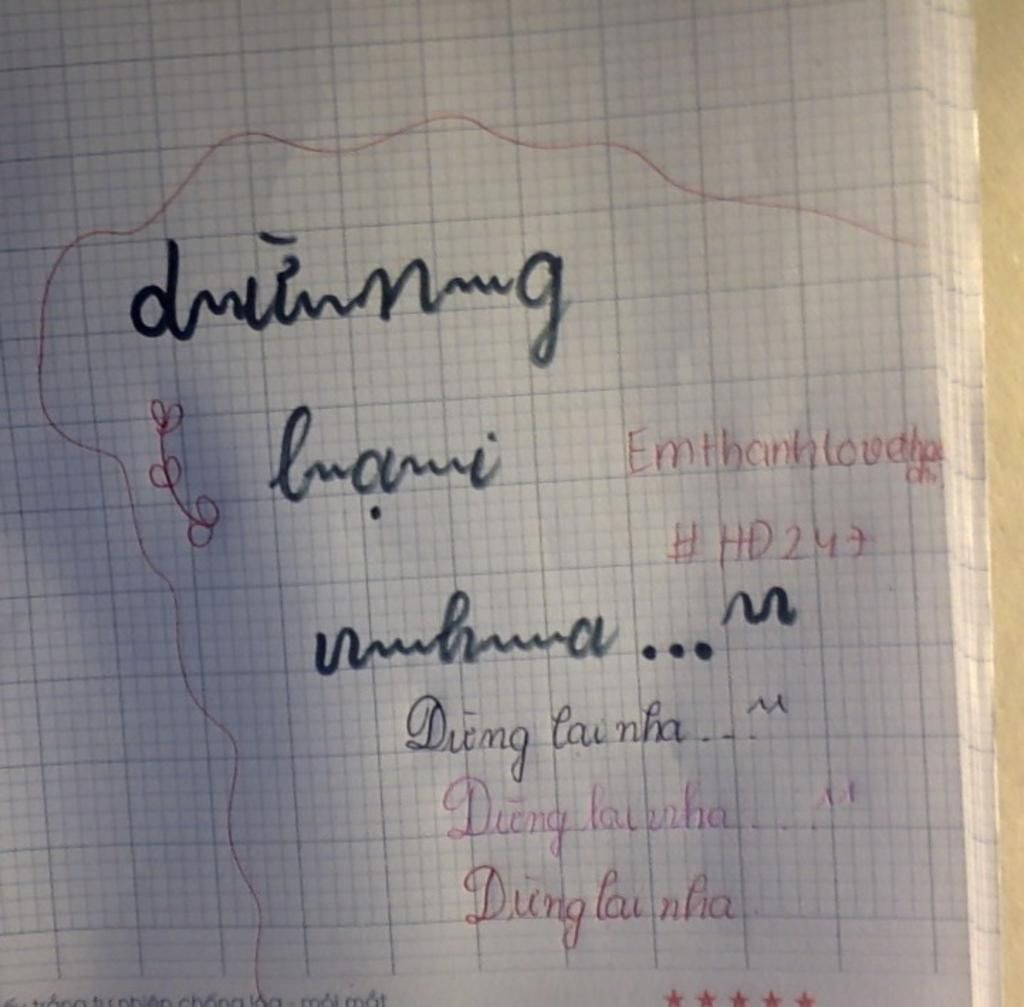 dừng
lại
Emthanhlove
# HD247
nha ... "
Dừng lại nha ... "
Dừng lại nha ... "
Dừng lại nha
trắng tự nhiên chống lóa - mỏi mắt